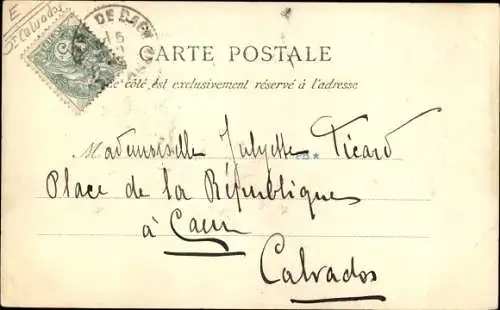 E
Calvados
DE
15
5
CARTE POSTALE
Ce côté est exclusivement réservé à l'adresse
Mademoiselle Julyette Ticard
Place de la Républiques
à Caen
Calvados